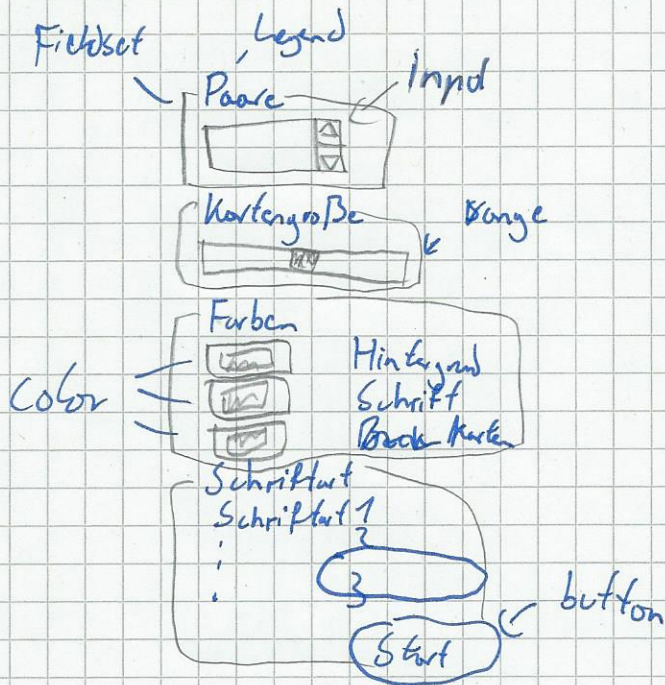 Fieldset
Legend
Paare
Input
Kartengröße
range
Farben
Color
Hintergrund
Schrift
Karten
Schriftart
Schriftart 1
2
3
button
Start